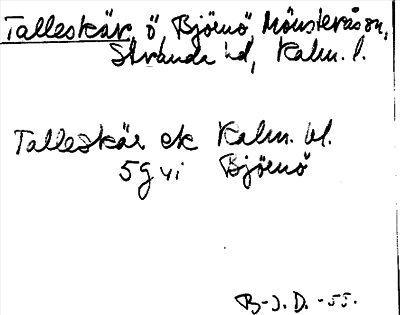 Talleskär, ö, Björnö, Mönsterås sn,
Stranda hd, Kalm. l.
Talleskär ek Kalm. bl.
5g vi Björnö
B-J. D. -55.